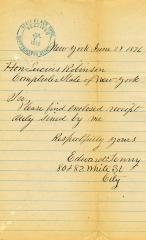 New York June 28 1876
Hon Lucius Robinson
Comptroller State of New York
Sir
Please find enclosed receipt
duly signed by me
Respectfully yours
Edward Henry
80 & 82 White St
City